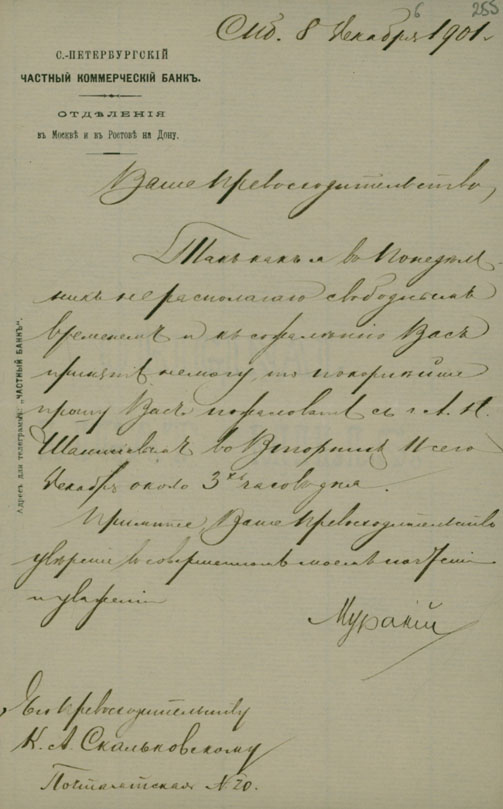 285
6
Спб. 8 Декабря 1901.
С.-ПЕТЕРБУРГСКІЙ
ЧАСТНЫЙ КОММЕРЧЕСКІЙ БАНКЪ.
ОТДѢЛЕНІЯ
въ Москвѣ и въ Ростовѣ на Дону.
Ваше превосходительство,
Такъ какъ я во Понедѣль-
никъ не располагаю свободнымъ
временемъ и къ сожалѣнію Васъ
принять не могу, то покорнѣйше
прошу Васъ пожаловать съ г. А. И.
во Вторникъ 11 сего
Декабря около 3хъ часовъ дня.
Примите, Ваше превосходительство
увѣреніе въ совершенномъ моемъ почтеніи
и уваженіи
Мураній
Его превосходительству
К. А. Скальковскому
Почтамтская № 20.
Адресъ для телеграммъ: „ЧАСТНЫЙ БАНКЪ“.